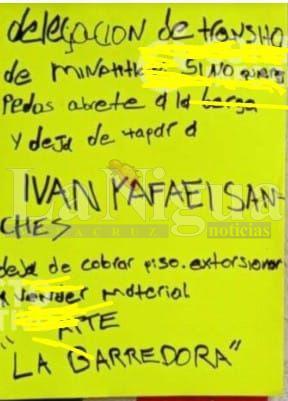 delegacion de transito
de minatitlan SI NO quieres
Pedos abrete a la berga
y deja de tapar a
IVAN RAFAEL SAN-
CHES
deja de cobrar piso. extorsionar
y vender material
ATTE
"LA BARREDORA"
La Nigua
VERACRUZ noticias